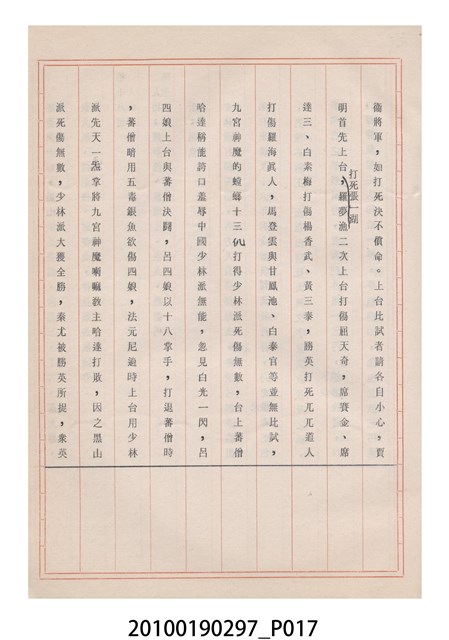 衞將軍，如打死決不償命。上台比試者請各自小心，賈
明首先上台，打死張一湖羅夢漁二次上台打傷屈天奇，席賽金、席
達三、白素梅打傷楊香武、黃三泰，勝英打死兀兀道人
打傷羅海眞人，馬登雲與甘鳳池、白泰官等並無比試，
九宮神魔的螳螂十三仈打得少林派死傷無數，台上蕃僧
哈達稱能誇口羞辱中國少林派無能，忽見白光一閃，呂
四娘上台與蕃僧決鬪，呂四娘以十八拿手，打退蕃僧時
，蕃僧暗用五毒銀魚欲傷四娘，法元尼適時上台用少林
派先天一炁拿將九宮神魔喇嘛敎主哈達打敗，因之黑山
派死傷無數，少林派大獲全勝，秦尤被勝英所捉，衆英
20100190297_P017